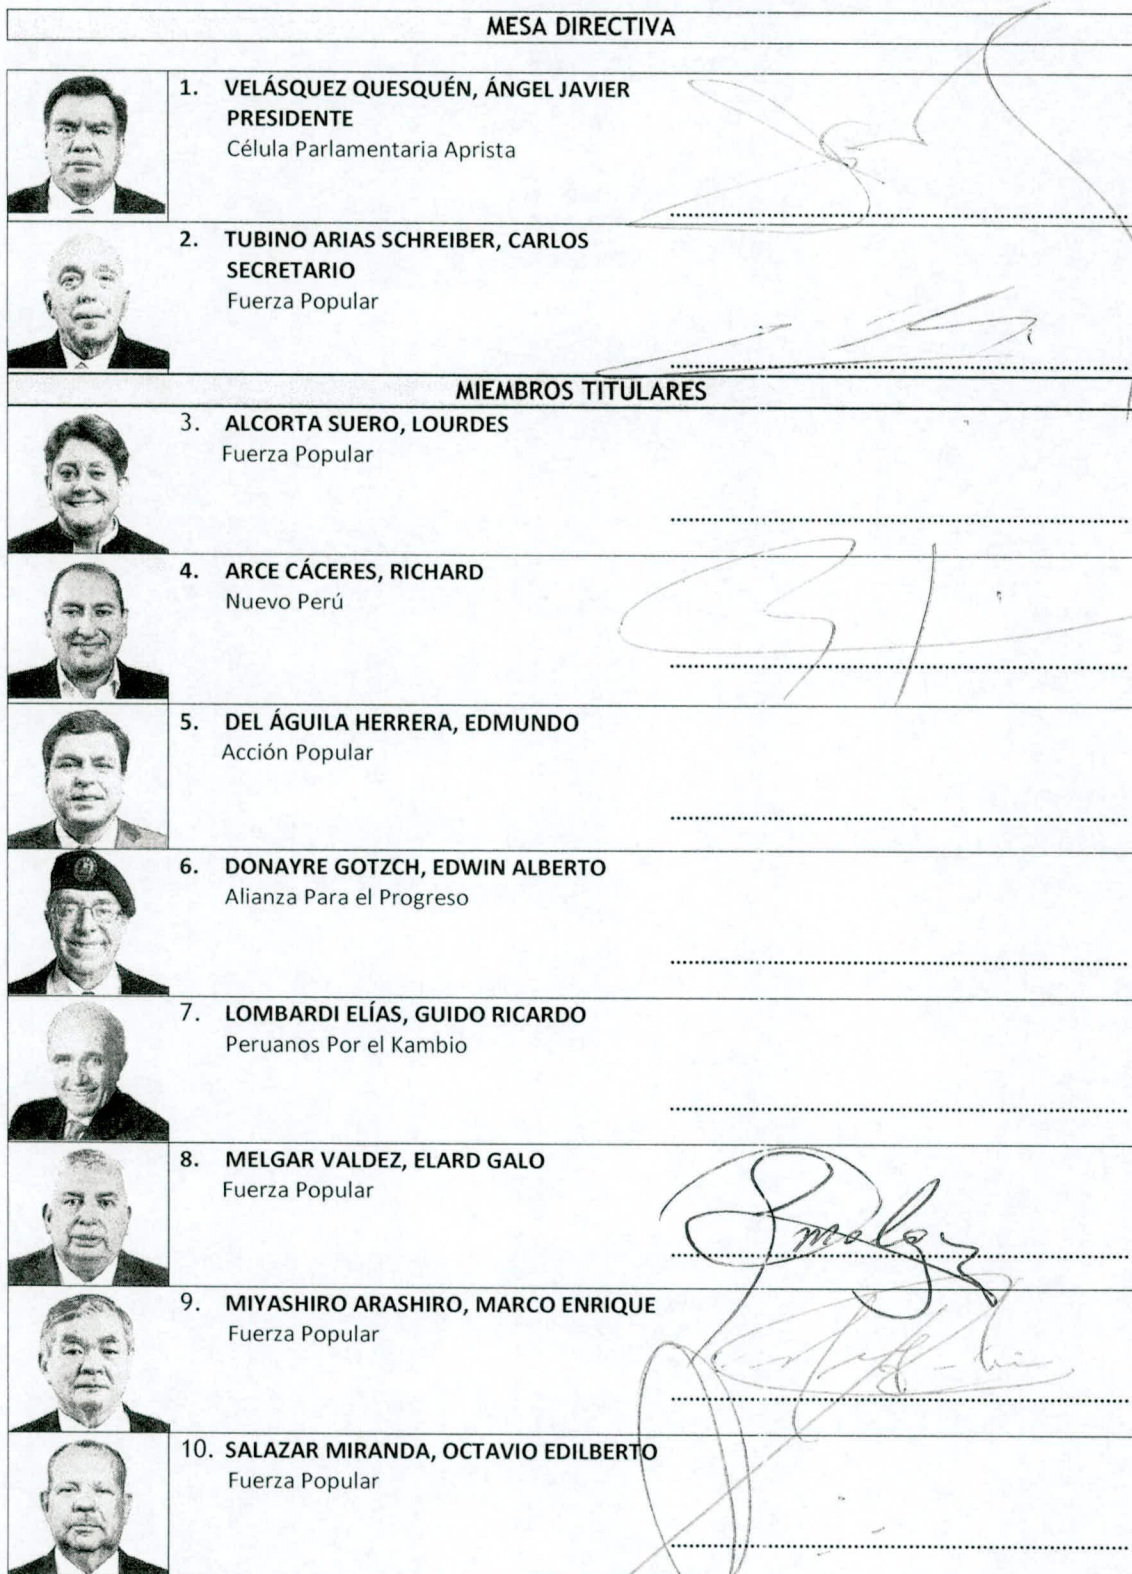 MESA DIRECTIVA
1. VELÁSQUEZ QUESQUÉN, ÁNGEL JAVIER
PRESIDENTE
Célula Parlamentaria Aprista
2. TUBINO ARIAS SCHREIBER, CARLOS
SECRETARIO
Fuerza Popular
MIEMBROS TITULARES
3. ALCORTA SUERO, LOURDES
Fuerza Popular
4. ARCE CÁCERES, RICHARD
Nuevo Perú
5. DEL ÁGUILA HERRERA, EDMUNDO
Acción Popular
6. DONAYRE GOTZCH, EDWIN ALBERTO
Alianza Para el Progreso
7. LOMBARDI ELÍAS, GUIDO RICARDO
Peruanos Por el Kambio
8. MELGAR VALDEZ, ELARD GALO
Fuerza Popular
9. MIYASHIRO ARASHIRO, MARCO ENRIQUE
Fuerza Popular
10. SALAZAR MIRANDA, OCTAVIO EDILBERTO
Fuerza Popular